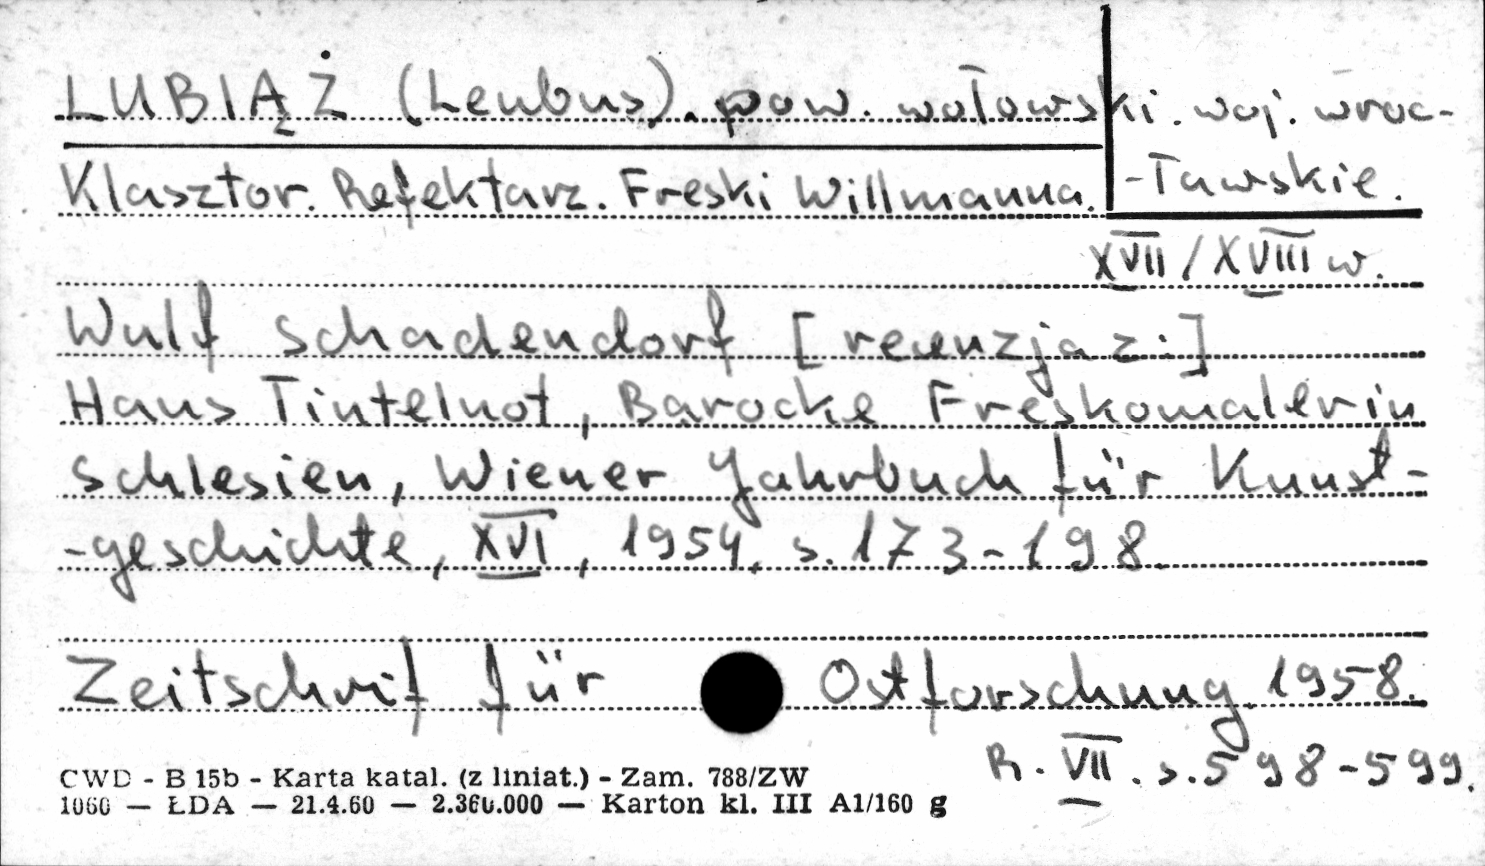 LUBIĄŻ (Leubus). pow. wołowski. woj. wroc-
Klasztor. Refektarz. Freski Willmanna. -ławskie.
XVII / XVIII w.
Wulf Schadendorf [recenzja z:]
Hans Tintelnot, Barocke Freskomaler in
Schlesien, Wiener Jahrbuch für Kunst-
-geschichte, XVI, 1954, s. 173-198.
Zeitschrif für Ostforschung. 1958.
R. VII. s. 598-599.
CWD - B 15b - Karta katal. (z liniat.) - Zam. 788/ZW
1060 — ŁDA — 21.4.60 — 2.360.000 — Karton kl. III A1/160 g